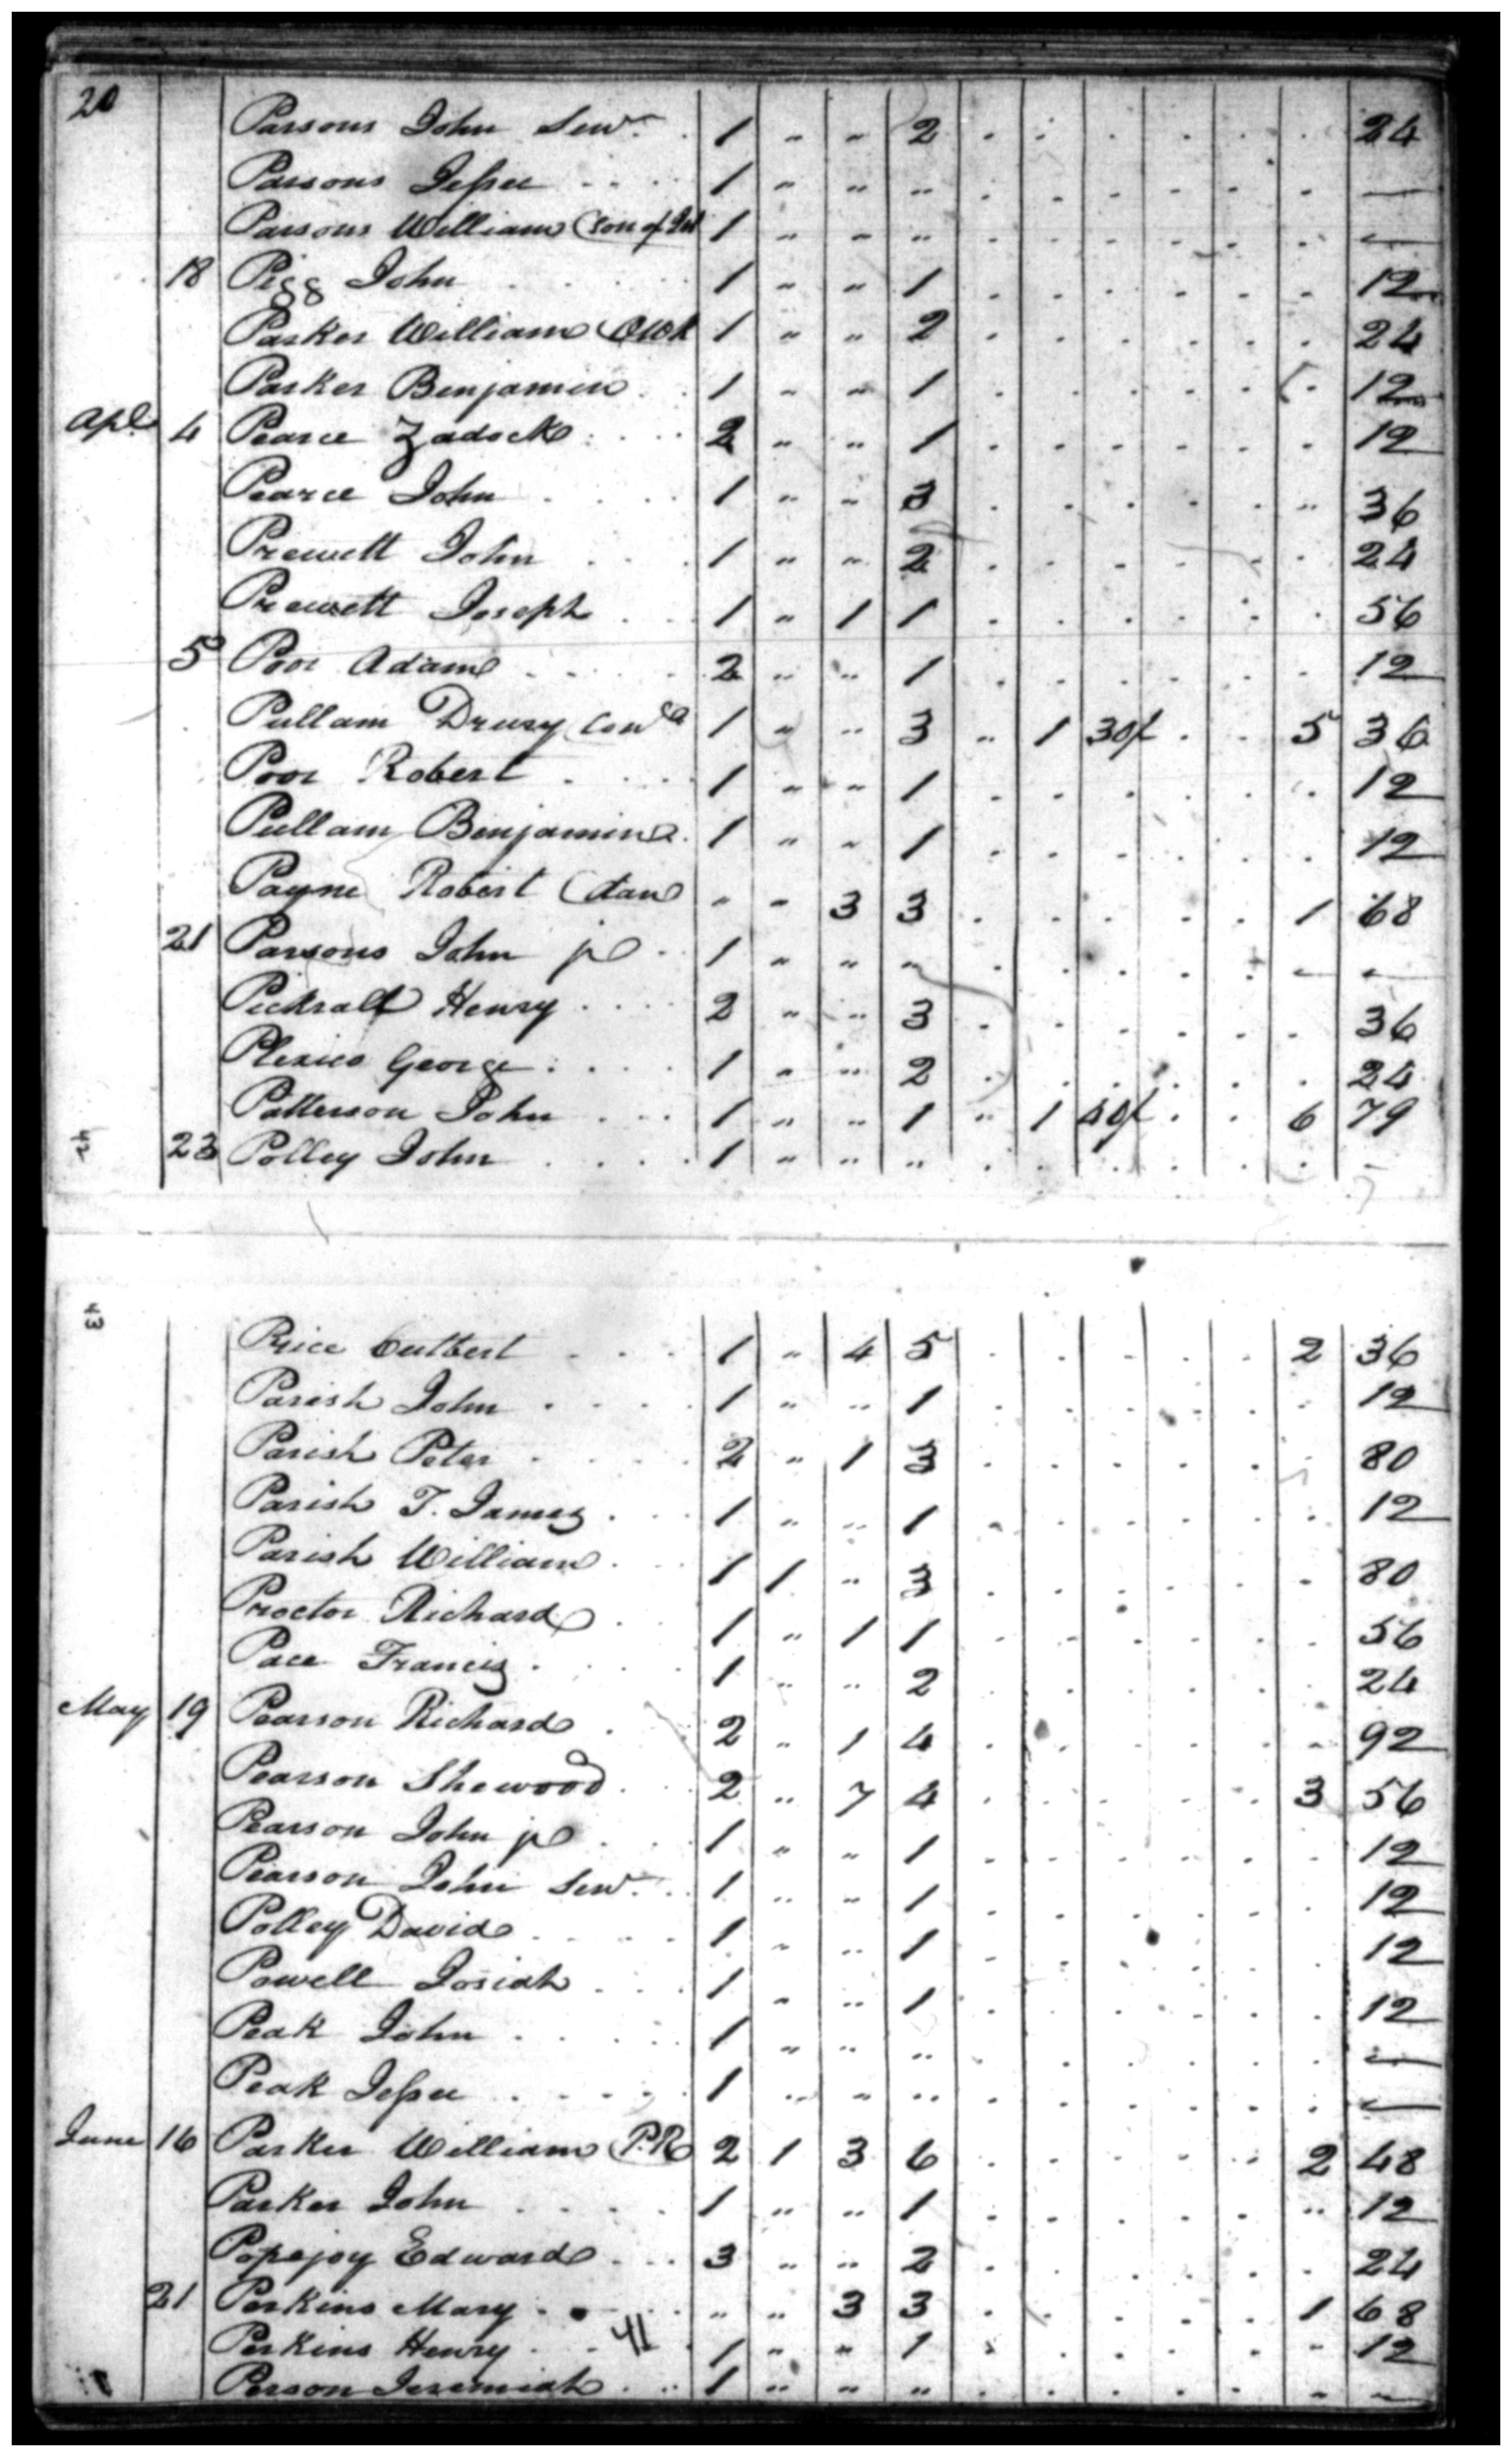 20
Parsons John Senr 1 " " 2 . . . . . . 24
Parsons Jessee 1 " " " . . . . . . —
Parsons William (Son of 1 " " " . . . . . . —
18 Pigg John 1 " " 1 . . . . . . 12
Parker William 1 " " 2 . . . . . . 24
Parker Benjamin 1 " " 1 . . . . . . 12
Apl 4 Pearce Zadock 2 " " 1 . . . . . . 12
Pearce John 1 " " 3 . . . . . " 36
Prewett John 1 " " 2 . . . . . . 24
Prewett Joseph 1 " 1 1 . . . . . . 56
5 Poor Adam 2 " " 1 . . . . . . 12
Pullam Drury 1 " " 3 " 1 30/ . . 5 36
Poor Robert 1 " " 1 . . . . . . 12
Pullam Benjamin 1 " " 1 . . . . . . 12
Payne Robert (Dan " " 3 3 . . . . . 1 68
21 Parsons John jr 1 " " " . . . . . — —
Pickrall Henry 2 " " 3 . . . . . . 36
Plexico George 1 " " 2 . . . . . . 24
Patterson John 1 " " 1 " 1 40/ . . 6 79
42 23 Polley John 1 " " " . . . . . . -
43
Price Cutbert 1 " 4 5 . . . . . 2 36
Parish John 1 " " 1 . . . . . . 12
Parish Peter 2 " 1 3 . . . . . . 80
Parish T. James 1 " " 1 . . . . . . 12
Parish William 1 1 " 3 . . . . . . 80
Proctor Richard 1 " 1 1 . . . . . . 56
Pace Francis 1 " " 2 . . . . . . 24
May 19 Pearson Richard 2 " 1 4 . . . . . . 92
Pearson Shewood 2 " 7 4 . . . . . 3 56
Pearson John jr 1 " " 1 . . . . . . 12
Pearson John Senr 1 " " 1 . . . . . . 12
Polley David 1 " " 1 . . . . . . 12
Powell Josiah 1 " " 1 . . . . . . 12
Peak John 1 " " " . . . . . . —
Peak Jessee 1 " " " . . . . . . —
June 16 Parker William (P.R 2 1 3 6 . . . . " 2 48
Parker John 1 " " 1 . . . . . " 12
Popejoy Edward 3 " " 2 . . . . . . 24
21 Perkins Mary " " 3 3 . . . . . 1 68
Perkins Henry 41 1 " " 1 . . . . . " 12
Person Jeremiah 1 " " " . . . . . - -